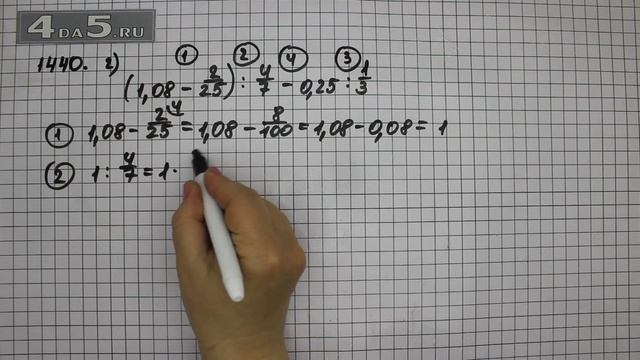 4DA5.RU
① ② ④ ③
1440. г) (1,08 - 2/25) : 4/7 - 0,25 : 1/3
① 1,08 - 2/25 ⁴ = 1,08 - 8/100 = 1,08 - 0,08 = 1
② 1 : 4/7 = 1 ·